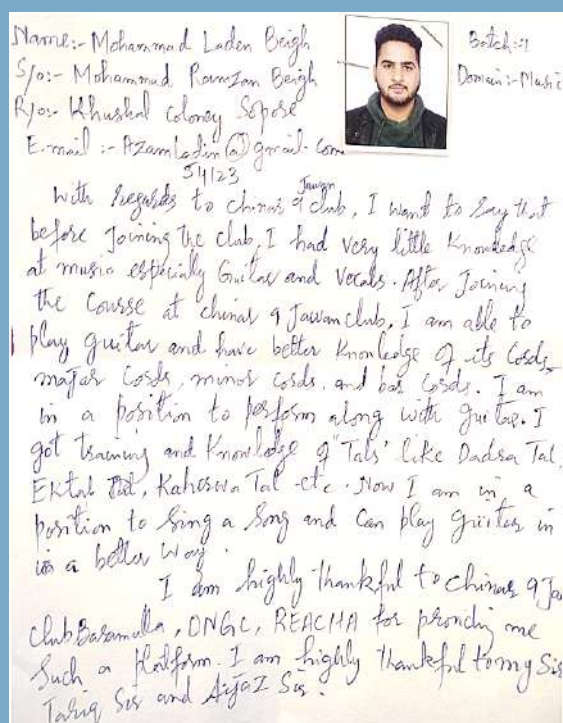 Name:- Mohammad Laden Beigh
Batch:-1
S/o:- Mohammad Ramzan Beigh
Domain:- Music
R/o:- Khushal Coloney Sopore
E.mail :- Azamladin@gmail.com
54123
With regards to chinar 9 Jawan club, I want to say that
before Joining the club, I had very little Knowledge
at music especially Guitar and Vocals. After Joining
the Course at chinar 9 Jawan club, I am able to
play guitar and have better Knowledge of its Cords,
major Cords, minor cords, and bar Cords. I am
in a position to perform along with guitar. I
got training and Knowledge of "Tals" like Dadra Tal,
Ektal Tal, Kaherwa Tal -etc. Now I am in a
position to Sing a Song and Can play guiter in
in a better way.
I am highly thankful to chinar 9 Jaw
club Baramulla, ONGC, REACHA for providing me
Such a platform. I am highly thankful to my Sir
Tariq Sir and Aijaz Sir.